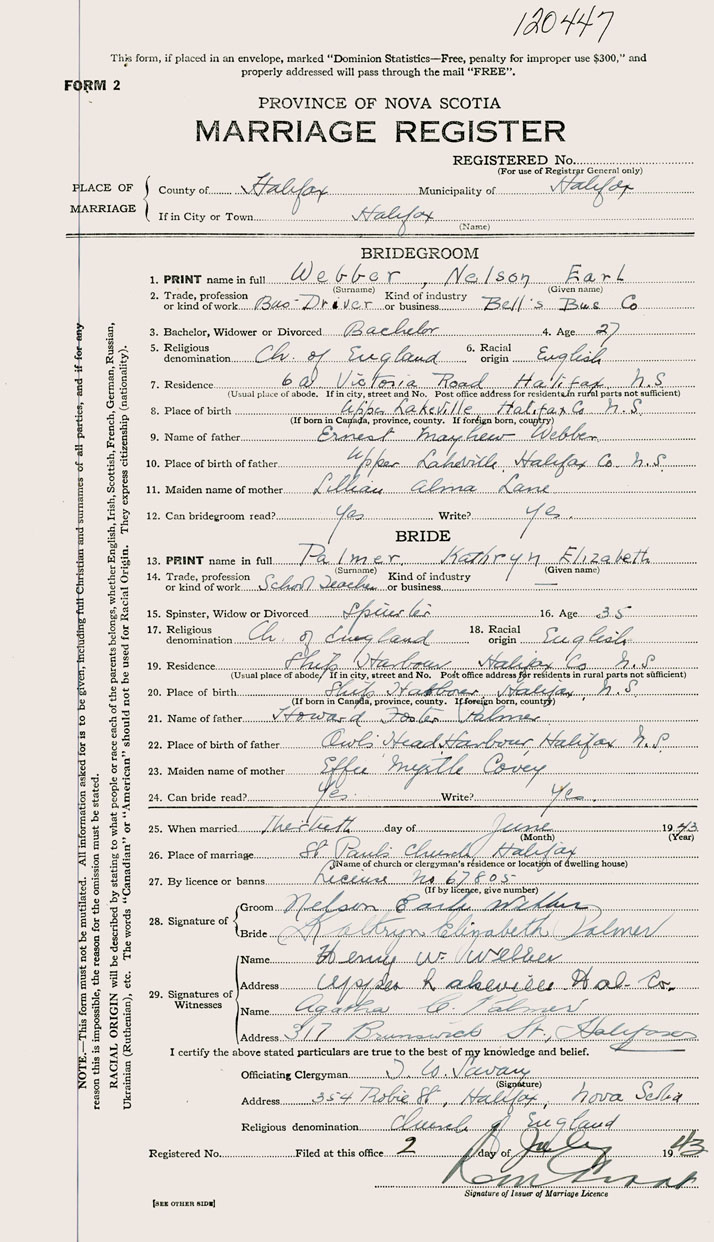 120447
This form, if placed in an envelope, marked "Dominion Statistics—Free, penalty for improper use $300," and
properly addressed will pass through the mail "FREE".
FORM 2
PROVINCE OF NOVA SCOTIA
MARRIAGE REGISTER
REGISTERED No.
(For use of Registrar General only)
PLACE OF MARRIAGE { County of Halifax Municipality of Halifax
If in City or Town Halifax
(Name)
BRIDEGROOM
1. PRINT name in full Webber, Nelson Earl
(Surname) (Given name)
2. Trade, profession or kind of work Bus-Driver Kind of industry or business Bell's Bus Co
3. Bachelor, Widower or Divorced Bachelor 4. Age 27
5. Religious denomination Ch. of England 6. Racial origin English
7. Residence 6a Victoria Road Halifax N.S
(Usual place of abode. If in city, street and No. Post office address for residents in rural parts not sufficient)
8. Place of birth Upper Lakeville Halifax Co N.S.
(If born in Canada, province, county. If foreign born, country)
9. Name of father Ernest Mayhew Webber
10. Place of birth of father Upper Lakeville, Halifax Co. N.S.
11. Maiden name of mother Lillian Alma Lane
12. Can bridegroom read? Yes Write? Yes.
BRIDE
13. PRINT name in full Palmer Kathryn Elizabeth
(Surname) (Given name)
14. Trade, profession or kind of work School Teacher Kind of industry or business —
15. Spinster, Widow or Divorced Spinster 16. Age 35
17. Religious denomination Ch. of England 18. Racial origin English
19. Residence Ship Harbour Halifax Co N.S
(Usual place of abode. If in city, street and No. Post office address for residents in rural parts not sufficient)
20. Place of birth Ship Harbour, Halifax, N.S
(If born in Canada, province, county. If foreign born, country)
21. Name of father Howard Foster Palmer
22. Place of birth of father Owls Head Harbour, Halifax N.S.
23. Maiden name of mother Effie Myrtle Covey
24. Can bride read? Yes Write? Yes.
25. When married Thirtieth day of June 1943
(Month) (Year)
26. Place of marriage St Paul's Church, Halifax
(Name of church or clergyman's residence or location of dwelling house)
27. By licence or banns License No 67805
(If by licence, give number)
28. Signature of { Groom Nelson Earle Webber
Bride Kathryn Elizabeth Palmer
29. Signatures of Witnesses { Name Henry W. Webber
Address Upper Lakeville Hal-Co.
Name Agatha C. Palmer
Address 317 Brunswick St., Halifax
I certify the above stated particulars are true to the best of my knowledge and belief.
Officiating Clergyman T. W. Savary
(Signature)
Address 354 Robie St, Halifax, Nova Scotia
Religious denomination Church of England
Registered No. Filed at this office 2 day of July 1943
Signature of Issuer of Marriage Licence
[SEE OTHER SIDE]
NOTE.—This form must not be mutilated. All information asked for is to be given, including full Christian and surnames of all parties, and if for any
reason this is impossible, the reason for the omission must be stated.
RACIAL ORIGIN will be described by stating to what people or race each of the parents belongs, whether English, Irish, Scottish, French, German, Russian,
Ukrainian (Ruthenian), etc. The words "Canadian" or "American" should not be used for Racial Origin. They express citizenship (nationality).